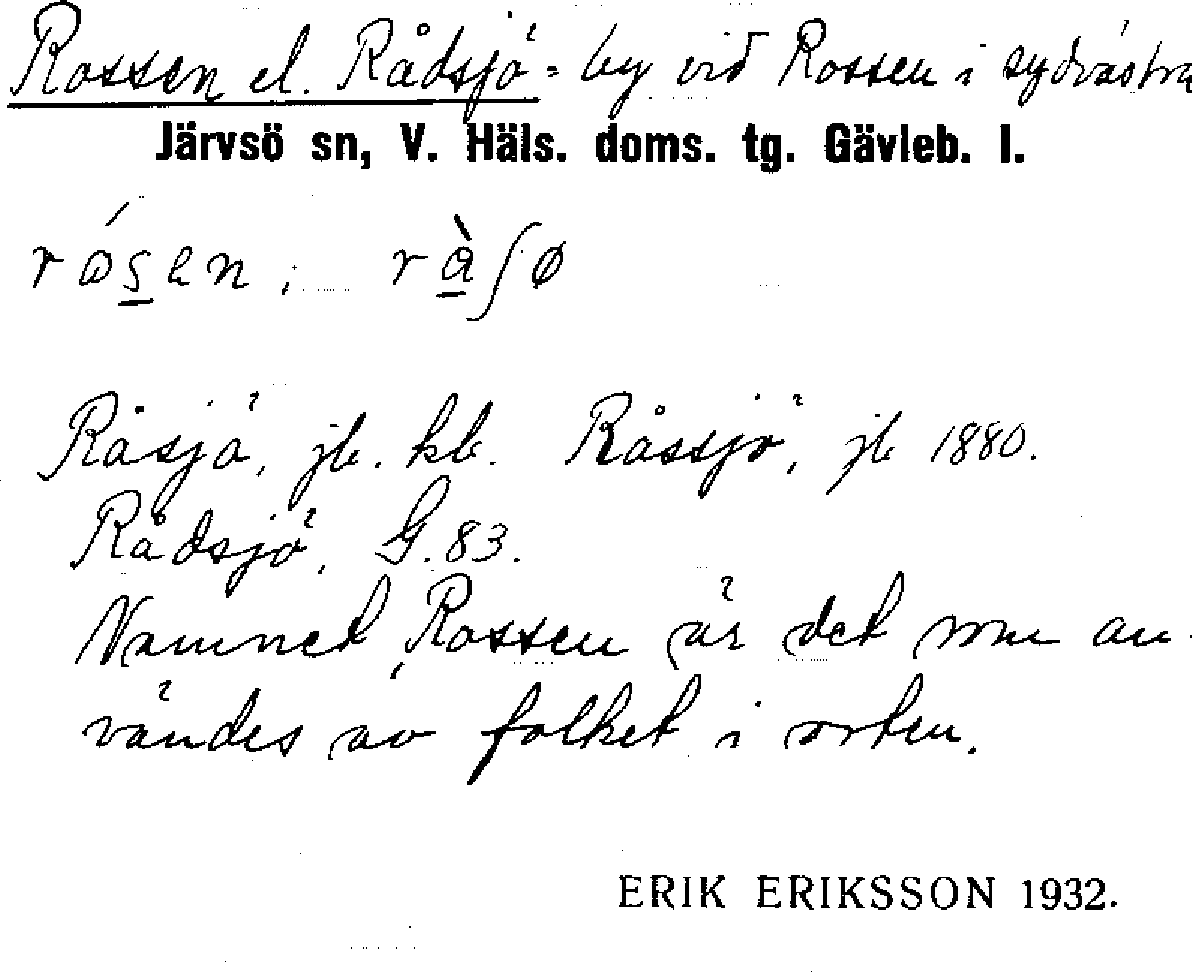 Rossen el. Rådsjö = by vid Rossen i sydvästra
Järvsö sn, V. Häls. doms. tg. Gävleb. l.
Råsjö, jb. kb. Råssjö, jb 1880.
Rådsjö, G.83.
Namnet Rossen är det som an-
vändes av folket i orten.
ERIK ERIKSSON 1932.